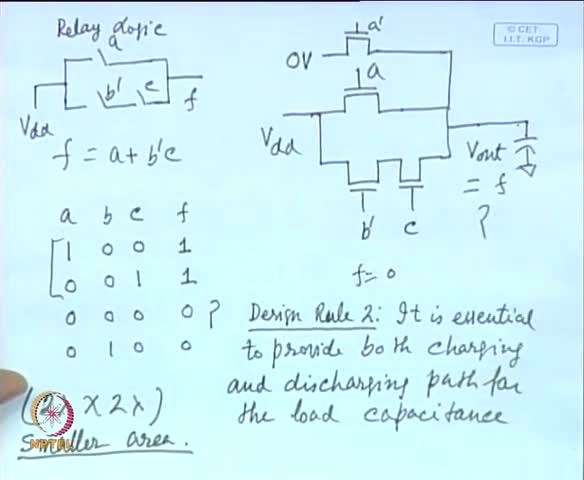 Relay Logic
a
b' c
f
Vdd
f = a + b'c
a b c f
1 0 0 1
0 0 1 1
0 0 0 0 ?
0 1 0 0
X 2λ)
Smaller area.
© CET
I.I.T. KGP
a'
0V
a
Vdd
Vout
= f
?
b' c
f = 0
Design Rule 2: It is essential
to provide both charging
and discharging path for
the load capacitance
NPTEL